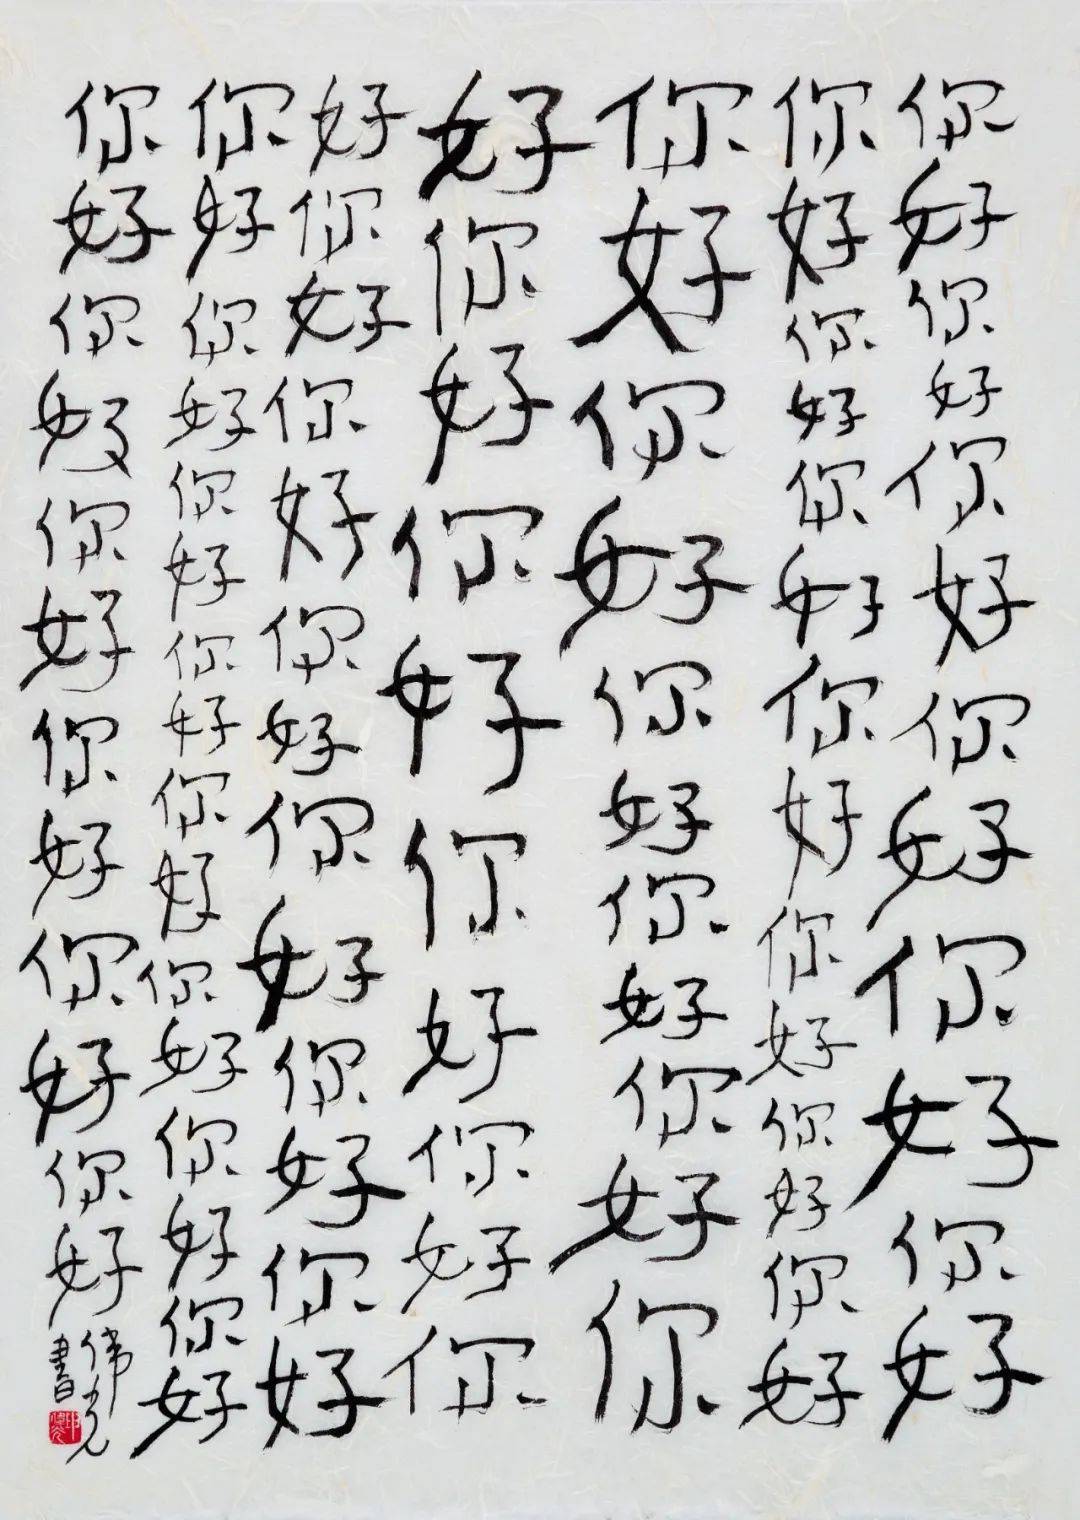 你好你好你好你好你好你好
你好你好你好你好你好你好你好
你好你好你好你好你好你
好你好你好你好你好你
好你好你好你好你好你好你好
你好你好你好你好你好你好你好你好
你好你好你好你好你好你好
偉光
書